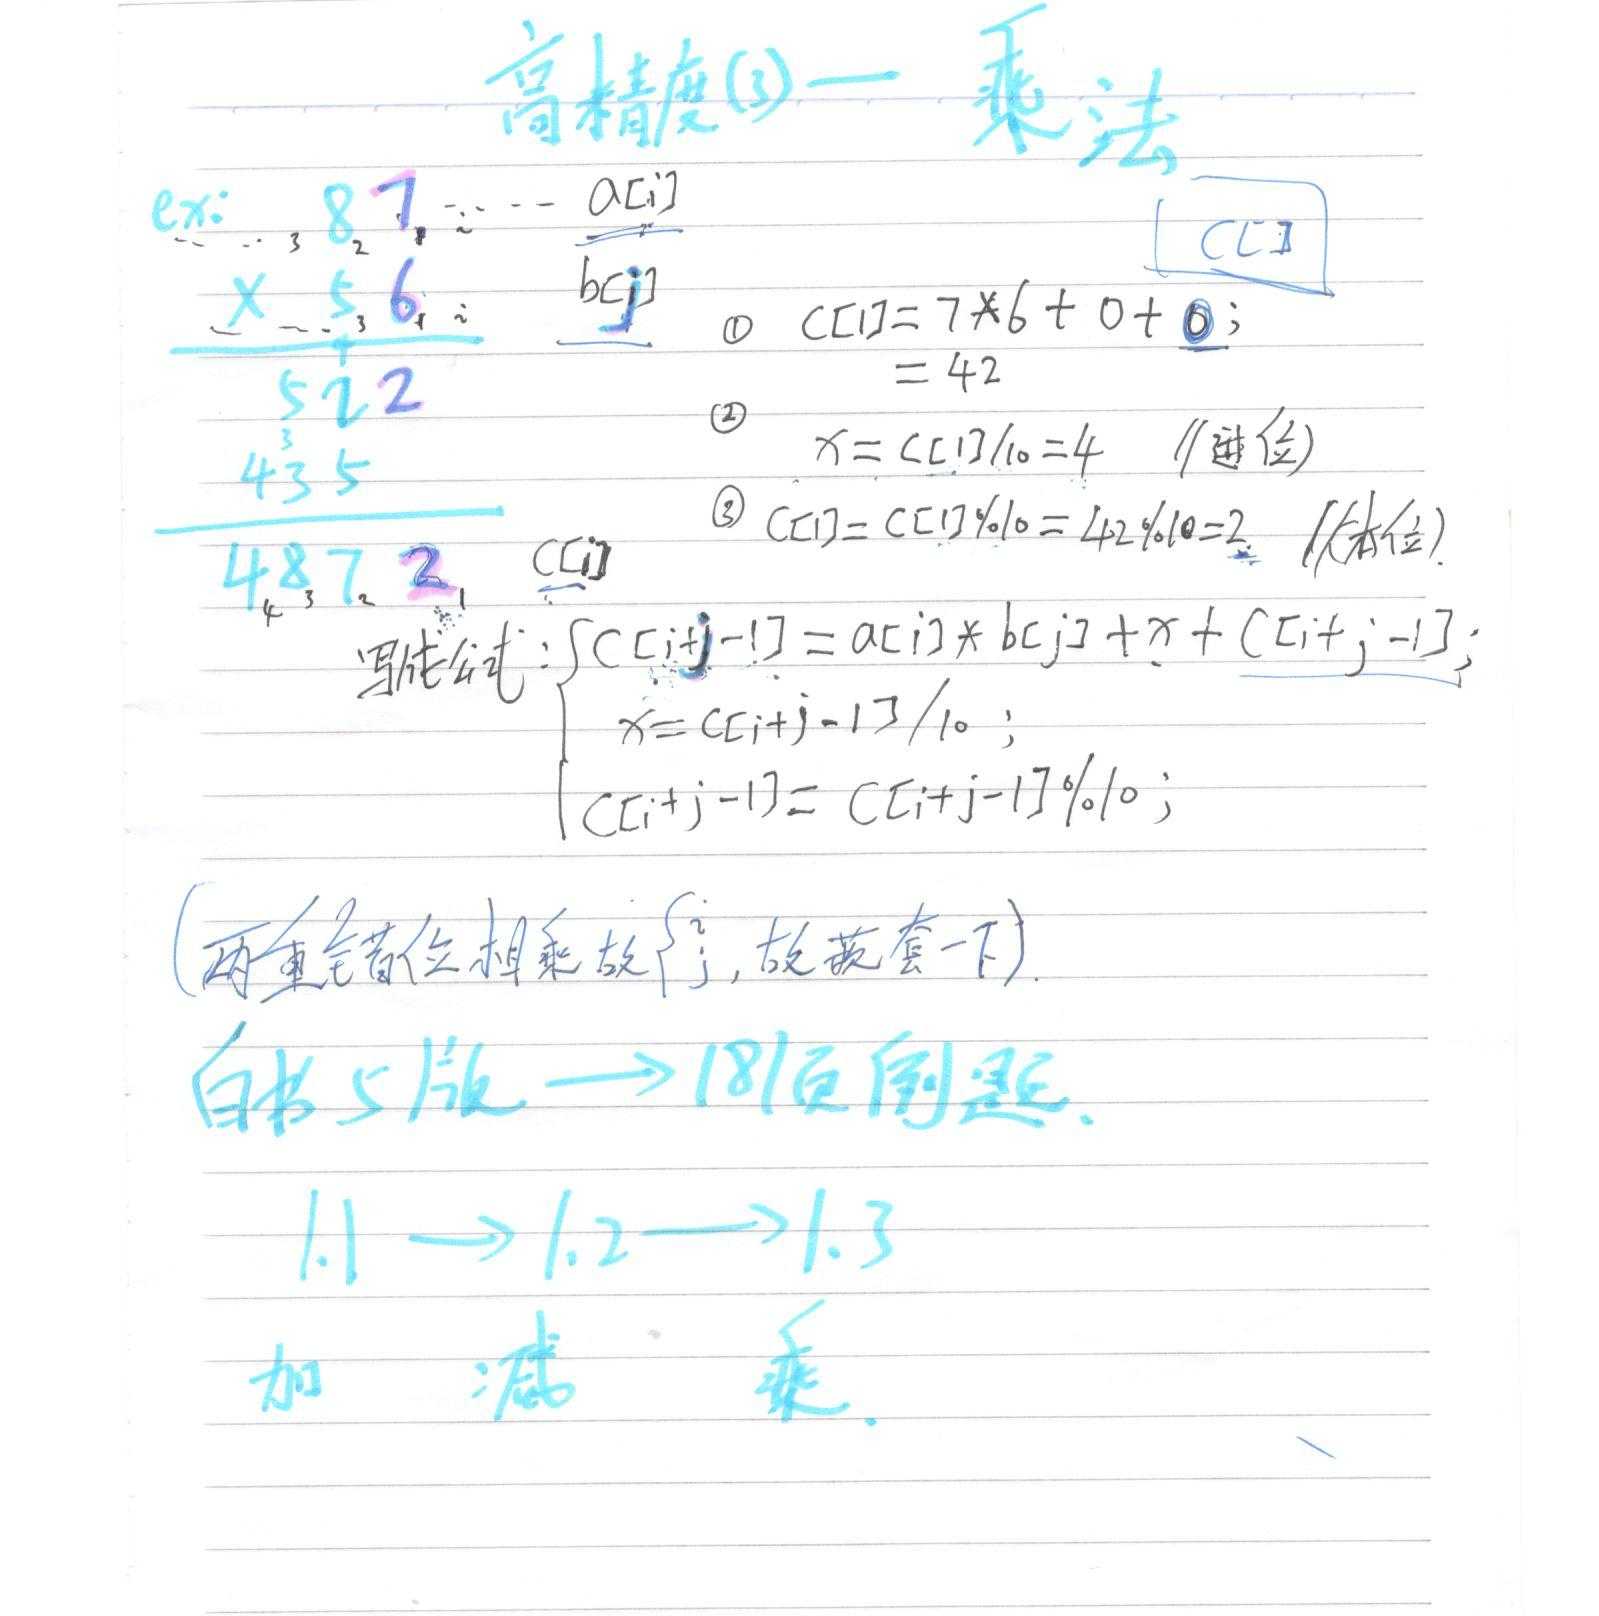 高精度(3)— 乘法
ex: 87 a[i]
3 2 1 i
× 56 b[j]
3 1 i
C[]
① C[1]=7*6+0+0;
=42
4
522
② x=C[1]/10=4 //进位)
3
435
③ C[1]=C[1]%10=42%10=2 //(本位).
4872 C[i]
4 3 2 1
写成公式: { C[i+j-1]=a[i]*b[j]+x+C[i+j-1];
x=C[i+j-1]/10;
C[i+j-1]=C[i+j-1]%10;
(两重错位相乘故{i j, 故嵌套一下).
白书5版 → 181页例题.
1.1 → 1.2 → 1.3
加 减 乘.